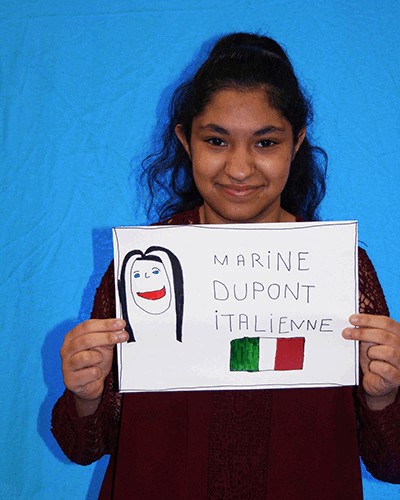 MARINE
DUPONT
iTALIENNE